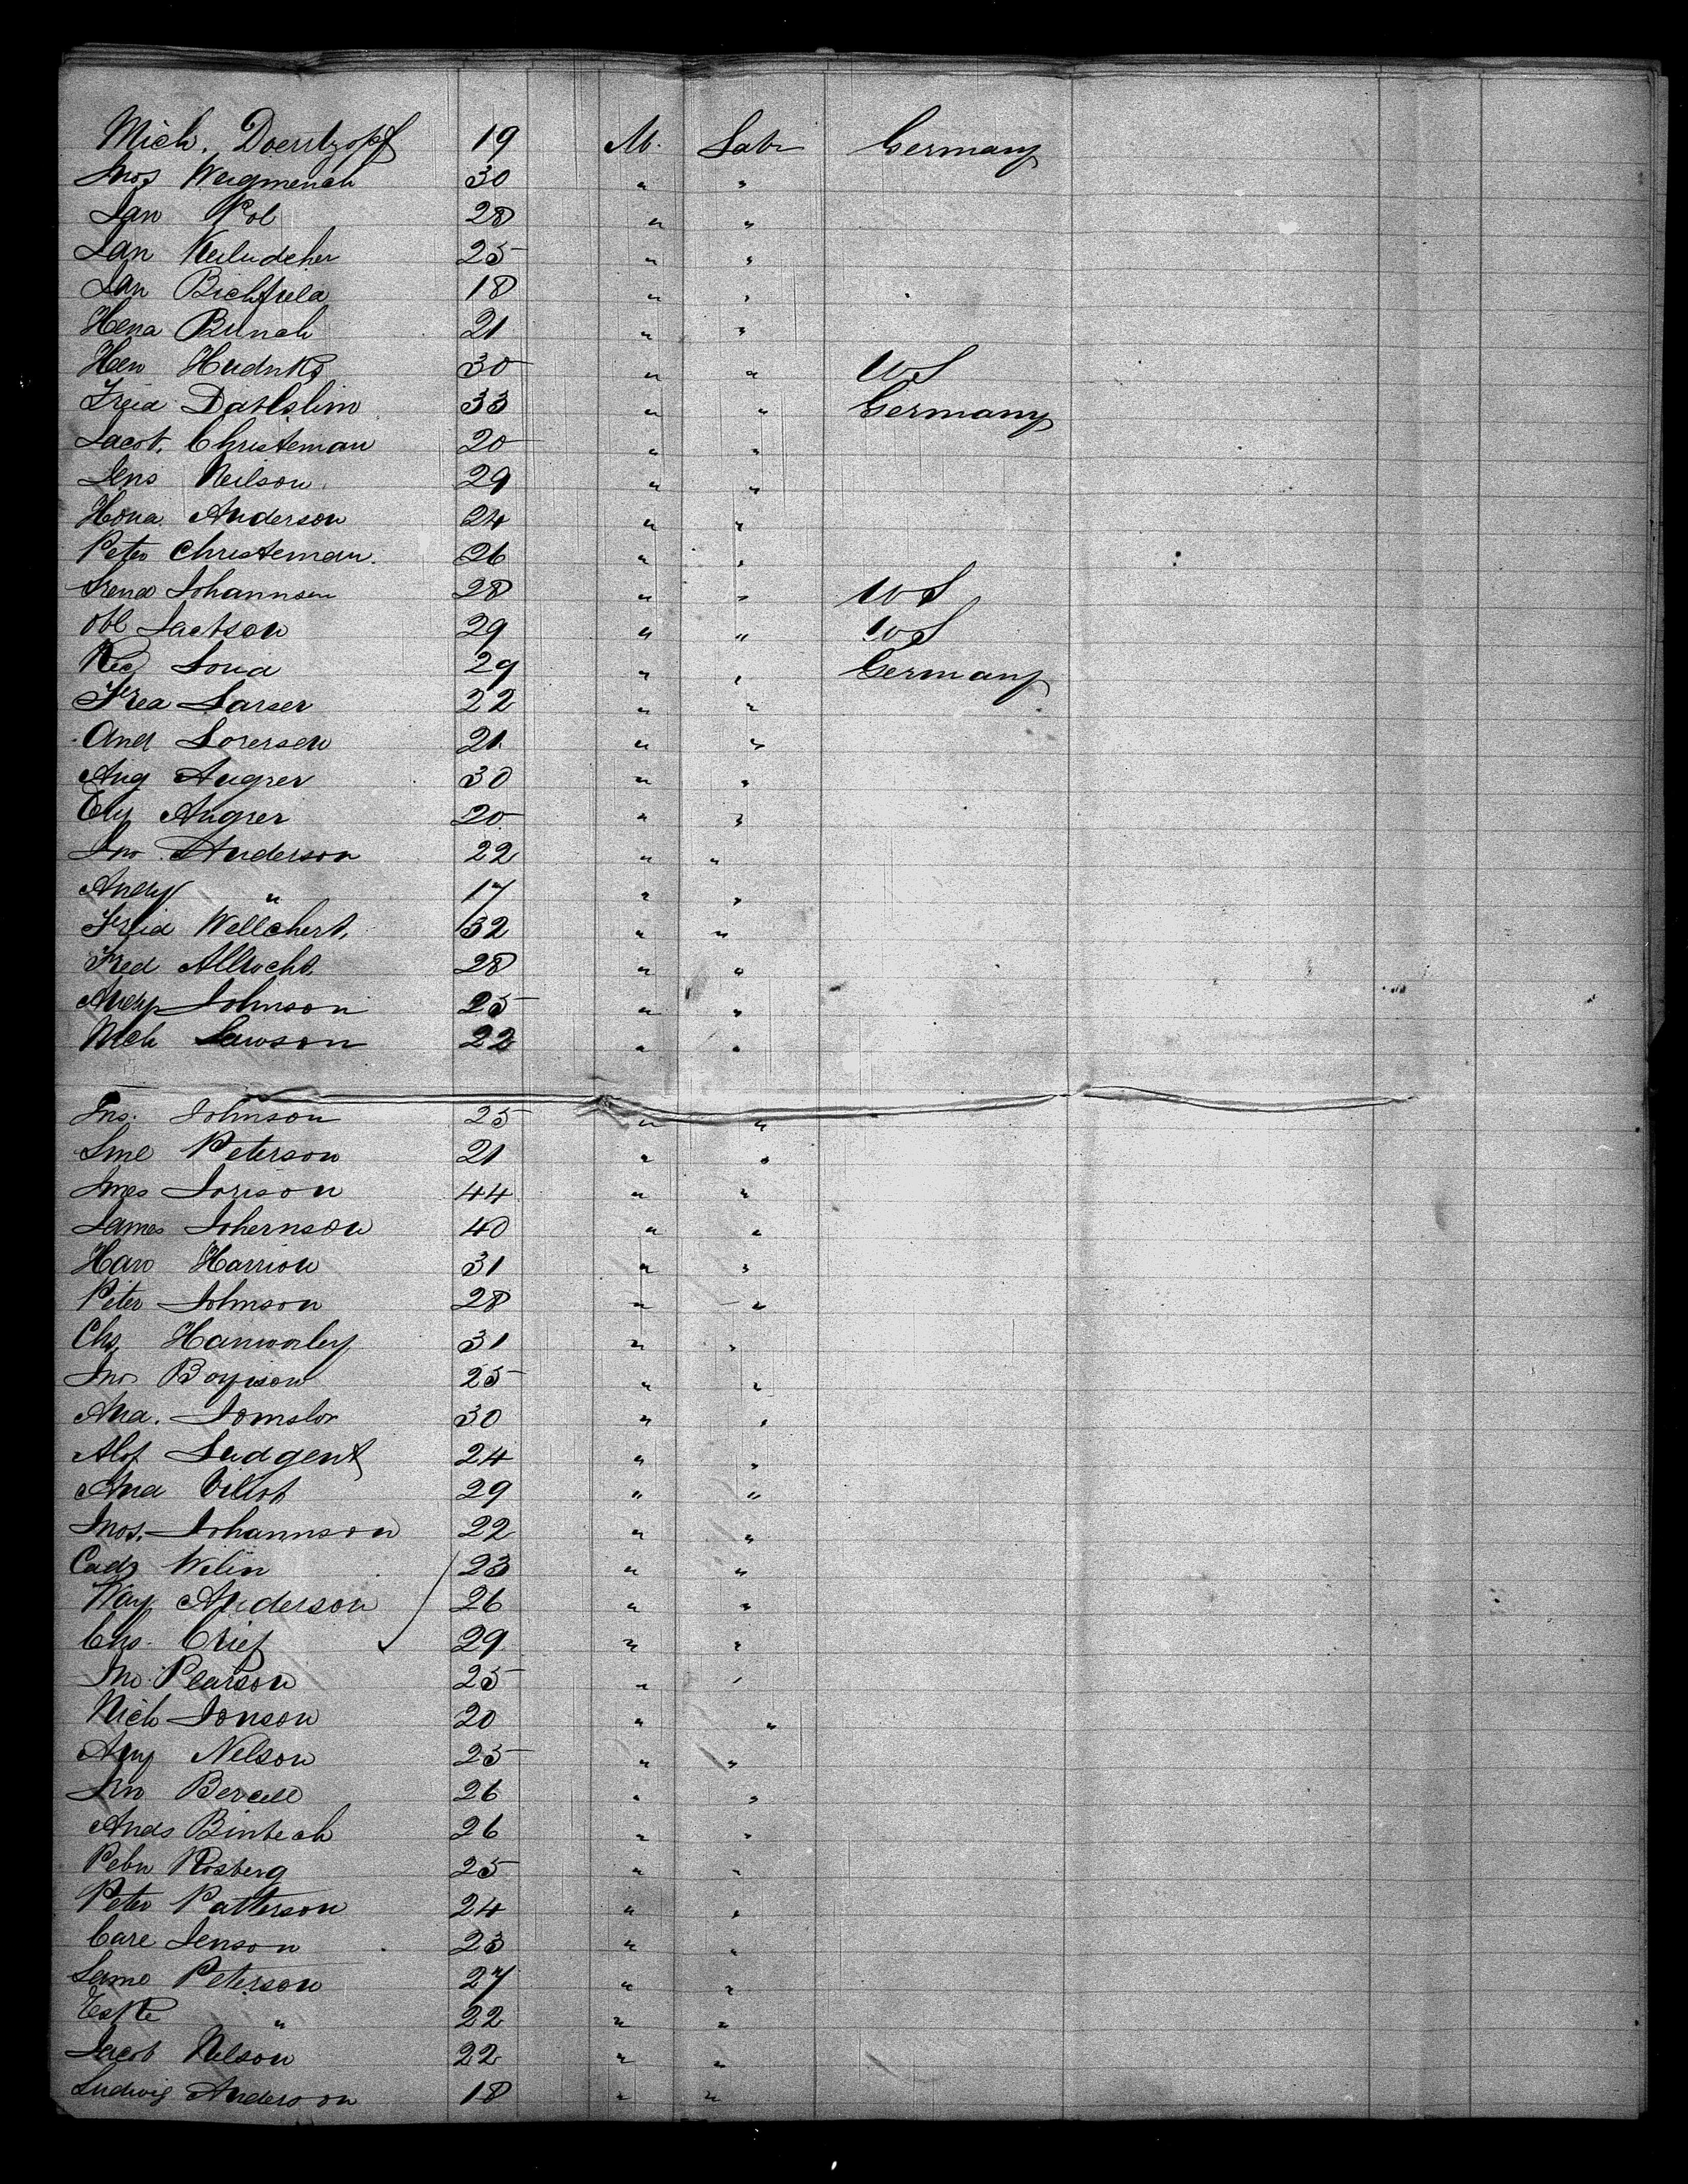 Mich. Doerrtzopf 19 M. Labr Germany
Jnos Wegmench 30 " "
Jan Pol 28 " "
Jan 25 " "
Jan Bichfiela 18 " "
Hena Bunch 21 " "
Hen 30 " " US
Freid Dahlslim 33 " " Germany
Jacob. Christeman 20 " "
Jens Neilson 29 " "
Hona Anderson 24 " "
Peter Christeman. 26 " "
Johannsen 28 " " US
Jackson 29 " " US
Loua 29 " " Germany
Frea Larser 22 " "
And Sorersen 21 " "
Aug Augrer 30 " "
Augrer 20 " "
Jno Anderson 22 " "
Andy " 17 " "
Freid Wellchert. 32 " "
Fred Allrocht 28 " "
Andy Johnson 25 " "
Nich Lawson 22 " "
Jno. Johnson 25 " "
Sml Peterson 21 " "
Jmes Jorison 44 " "
James Johernson 40 " "
Haw Harrion 31 " "
Peter Johnson 28 " "
Chs. Hanworley 31 " "
Jno Boyison 25 " "
And. Jomslor 30 " "
Alof Sudgent 24 " "
And 29 " "
Jnos. Johannson 22 " "
Welin 23 " "
Way Anderson 26 " "
Chs. Crief 29 " "
Jno Pearson 25 " "
Nich Jonson 20 " "
Nelson 25 " "
Jno Bercell 26 " "
Ands Bintech 26 " "
Rosberg 25 " "
Peter Patterson 24 " "
Care Jenson 23 " "
Peterson 27 " "
" 22 " "
Jacob Nelson 22 " "
Ludwig Anderson 18 " "